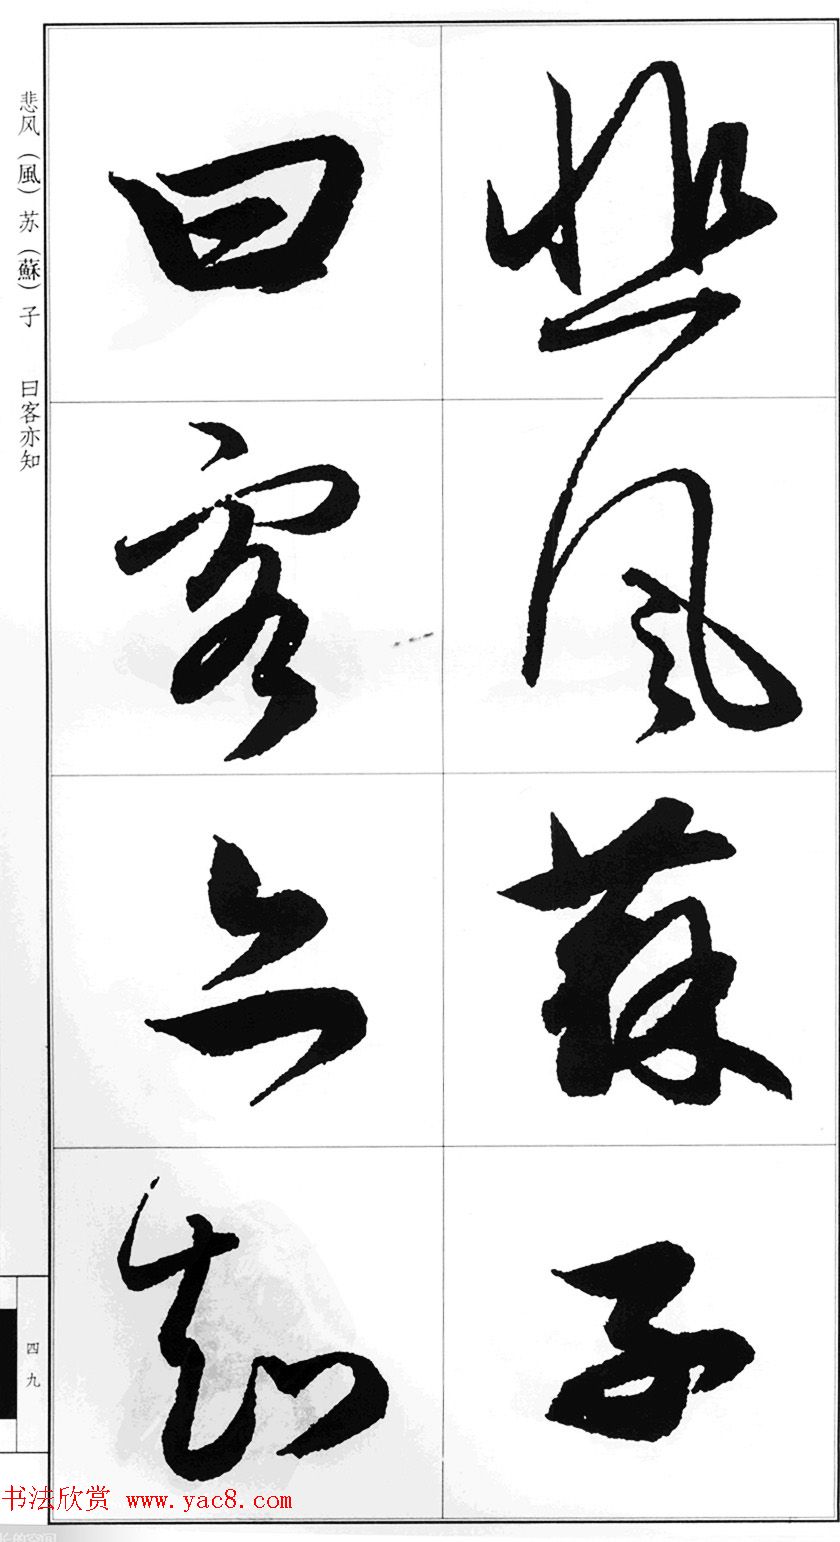 悲風蘇子
曰客亦知
悲风（風）苏（蘇）子 曰客亦知
四九
书法欣赏 www.yac8.com